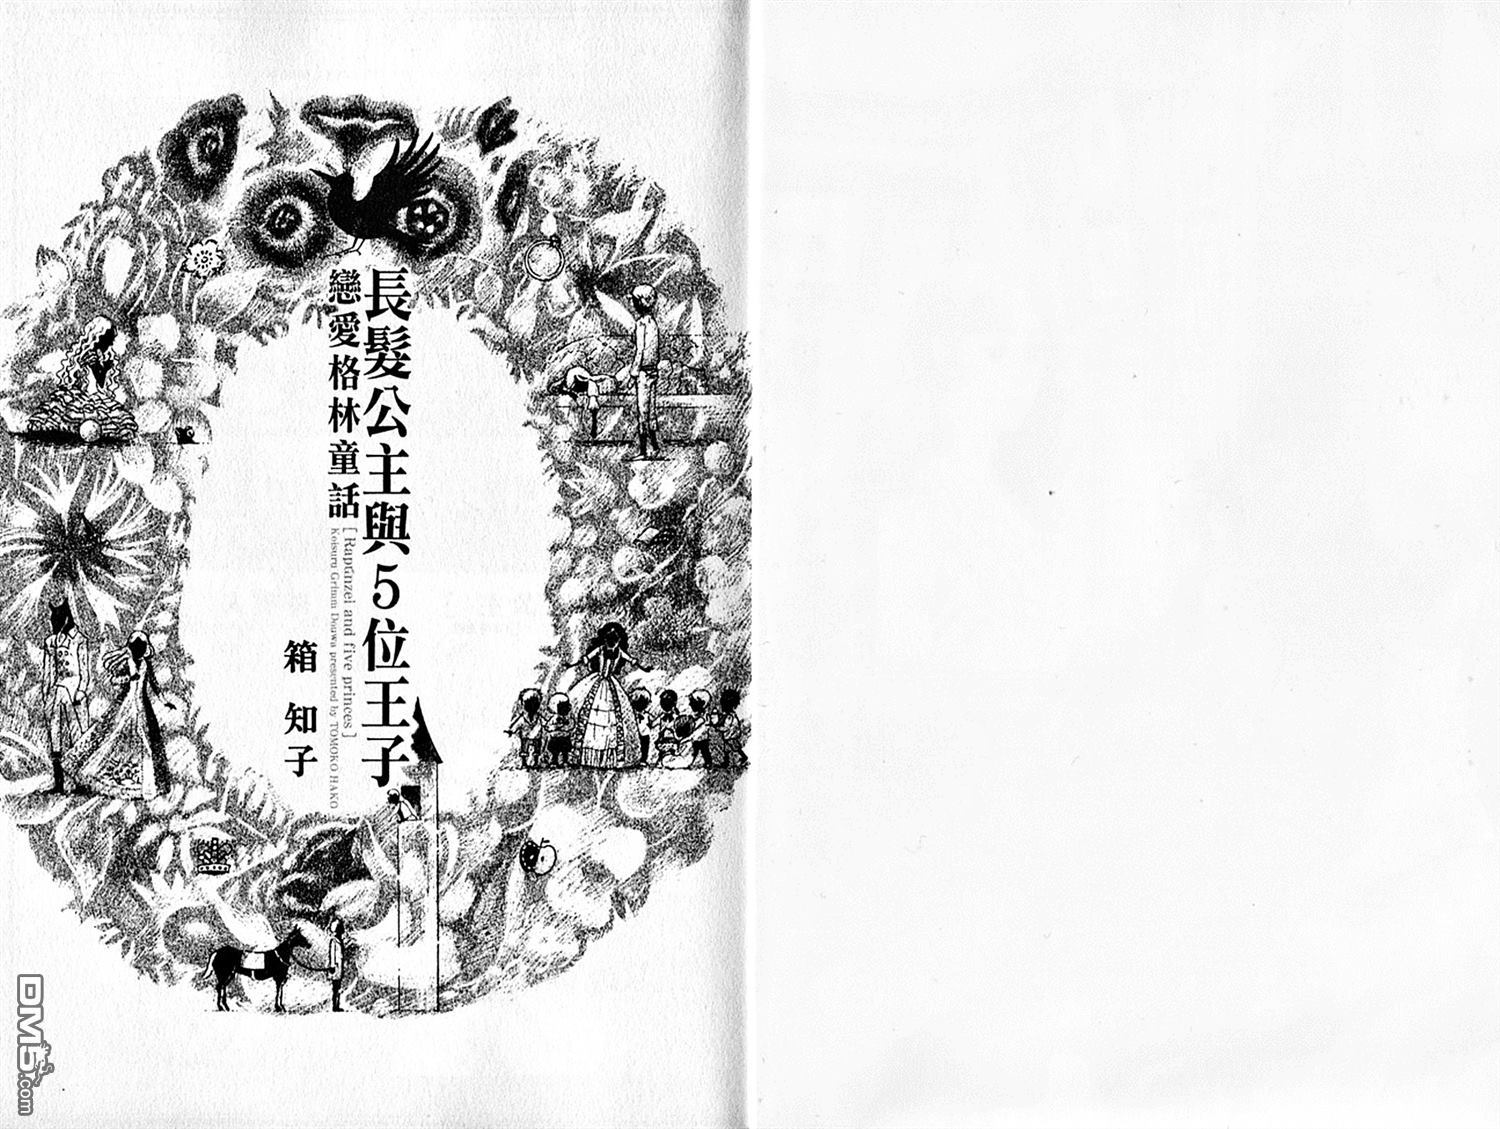 長髮公主與5位王子
戀愛格林童話
[Rapunzel and five princes]
Koisuru Grimm Douwa presented by TOMOKO HAKO
箱 知子
DM5.com